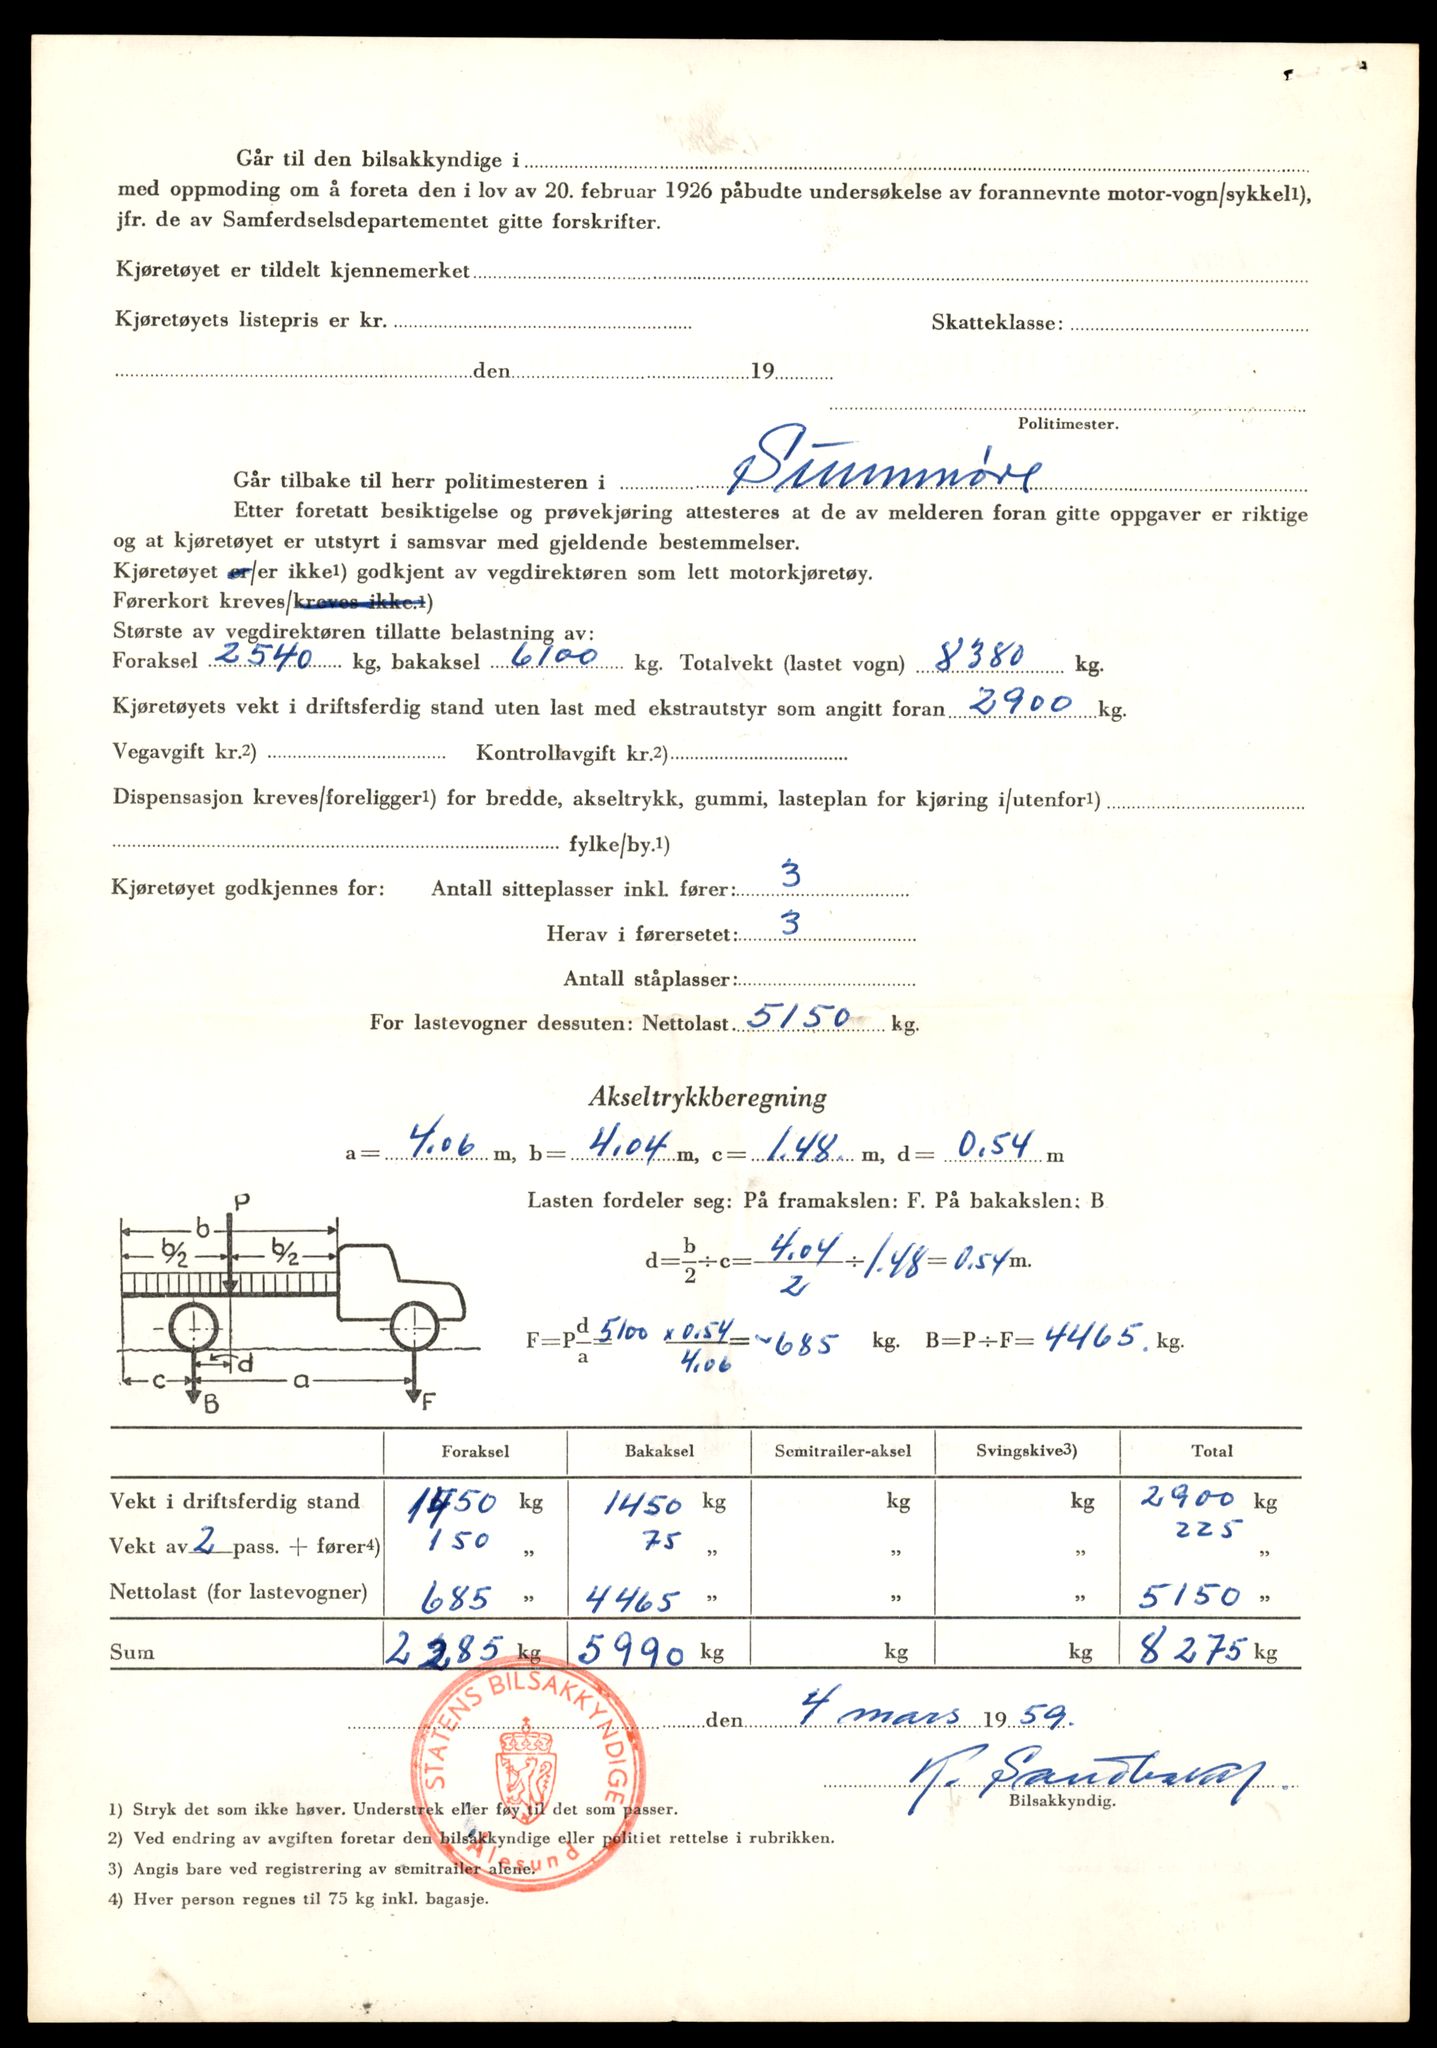 Går til den bilsakkyndige i
med oppmoding om å foreta den i lov av 20. februar 1926 påbudte undersøkelse av forannevnte motor-vogn/sykkel1),
jfr. de av Samferdselsdepartementet gitte forskrifter.
Kjøretøyet er tildelt kjennemerket
Kjøretøyets listepris er kr. Skatteklasse:
den 19
Politimester.
Går tilbake til herr politimesteren i Sunnmøre
Etter foretatt besiktigelse og prøvekjøring attesteres at de av melderen foran gitte oppgaver er riktige
og at kjøretøyet er utstyrt i samsvar med gjeldende bestemmelser.
Kjøretøyet er/er ikke1) godkjent av vegdirektøren som lett motorkjøretøy.
Førerkort kreves/kreves ikke.1)
Største av vegdirektøren tillatte belastning av:
Foraksel 2540 kg, bakaksel 6100 kg. Totalvekt (lastet vogn) 8380 kg.
Kjøretøyets vekt i driftsferdig stand uten last med ekstrautstyr som angitt foran 2900 kg.
Vegavgift kr.2) Kontrollavgift kr.2)
Dispensasjon kreves/foreligger1) for bredde, akseltrykk, gummi, lasteplan for kjøring i/utenfor1)
fylke/by.1)
Kjøretøyet godkjennes for: Antall sitteplasser inkl. fører: 3
Herav i førersetet: 3
Antall ståplasser:
For lastevogner dessuten: Nettolast 5150 kg.
Akseltrykkberegning
a = 4.06 m, b = 4.04 m, c = 1.48 m, d = 0.54 m
Lasten fordeler seg: På framakslen: F. På bakakslen: B
P
b
b/2 b/2
d
c a
B F
d = b/2 ÷ c = 4.04/2 ÷ 1.48 = 0.54 m.
F = P d/a = 5100 x 0.54/4.06 = ~685 kg. B = P ÷ F = 4465. kg.
Foraksel Bakaksel Semitrailer-aksel Svingskive3) Total
Vekt i driftsferdig stand 1450 kg 1450 kg kg kg 2900 kg
Vekt av 2 pass. + fører4) 150 „ 75 „ „ „ 225 „
Nettolast (for lastevogner) 685 „ 4465 „ „ „ 5150 „
Sum 2285 kg 5990 kg kg kg 8275 kg
den 4 mars 1959.
Bilsakkyndig.
STATENS BILSAKKYNDIGE
Ålesund
1) Stryk det som ikke høver. Understrek eller føy til det som passer.
2) Ved endring av avgiften foretar den bilsakkyndige eller politiet rettelse i rubrikken.
3) Angis bare ved registrering av semitrailer alene.
4) Hver person regnes til 75 kg inkl. bagasje.